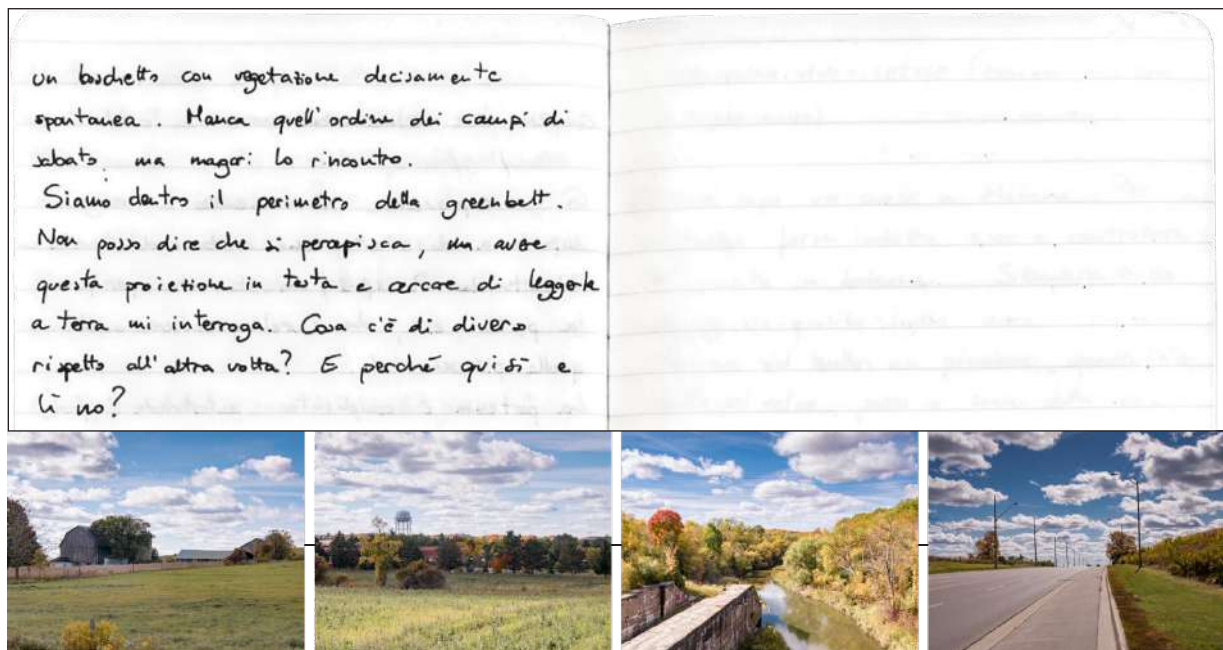 un boschetto con vegetazione decisamente
spontanea. Manca quell'ordine dei campi di
sabato, ma magari lo rincontro.
Siamo dentro il perimetro della greenbelt.
Non posso dire che si percepisca, ma avere
questa proiezione in testa e cercare di leggerla
a terra mi interroga. Cosa c'è di diverso
rispetto all'altra volta? E perché qui sì e
lì no?